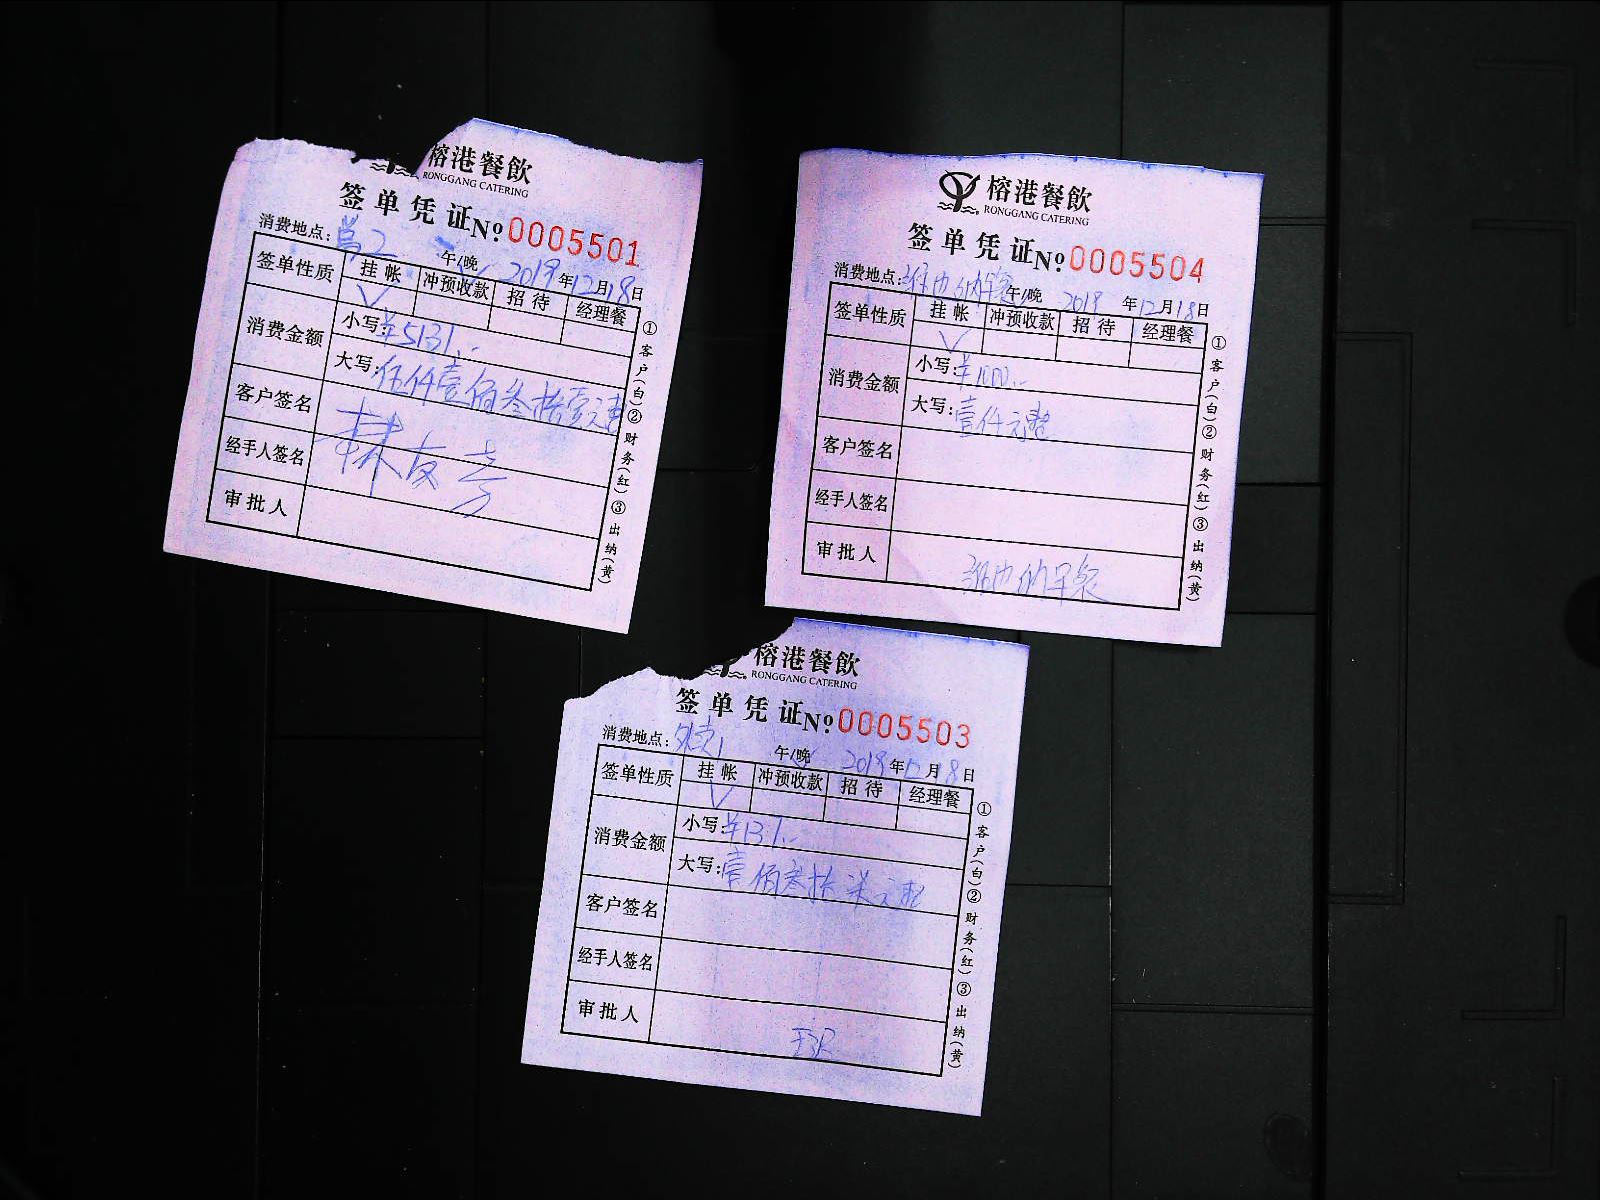 榕港餐飲
RONGGANG CATERING
签单凭证 №0005501
消费地点: 午/晚 2019年12月18日
签单性质 挂帐 冲预收款 招待 经理餐
√
消费金额 小写:¥5131.-
大写:伍仟壹佰叁拾壹元整
客户签名
经手人签名
审批人
①客户(白)②财务(红)③出纳(黄)
榕港餐飲
RONGGANG CATERING
签单凭证 №0005504
消费地点: 午/晚 2019年12月18日
签单性质 挂帐 冲预收款 招待 经理餐
√
消费金额 小写:¥1000.-
大写:壹仟元整
客户签名
经手人签名
审批人
①客户(白)②财务(红)③出纳(黄)
榕港餐飲
RONGGANG CATERING
签单凭证 №0005503
消费地点:外卖 午/晚 2019年12月18日
签单性质 挂帐 冲预收款 招待 经理餐
√
消费金额 小写:¥137.-
大写:壹佰叁拾柒元整
客户签名
经手人签名
审批人
①客户(白)②财务(红)③出纳(黄)